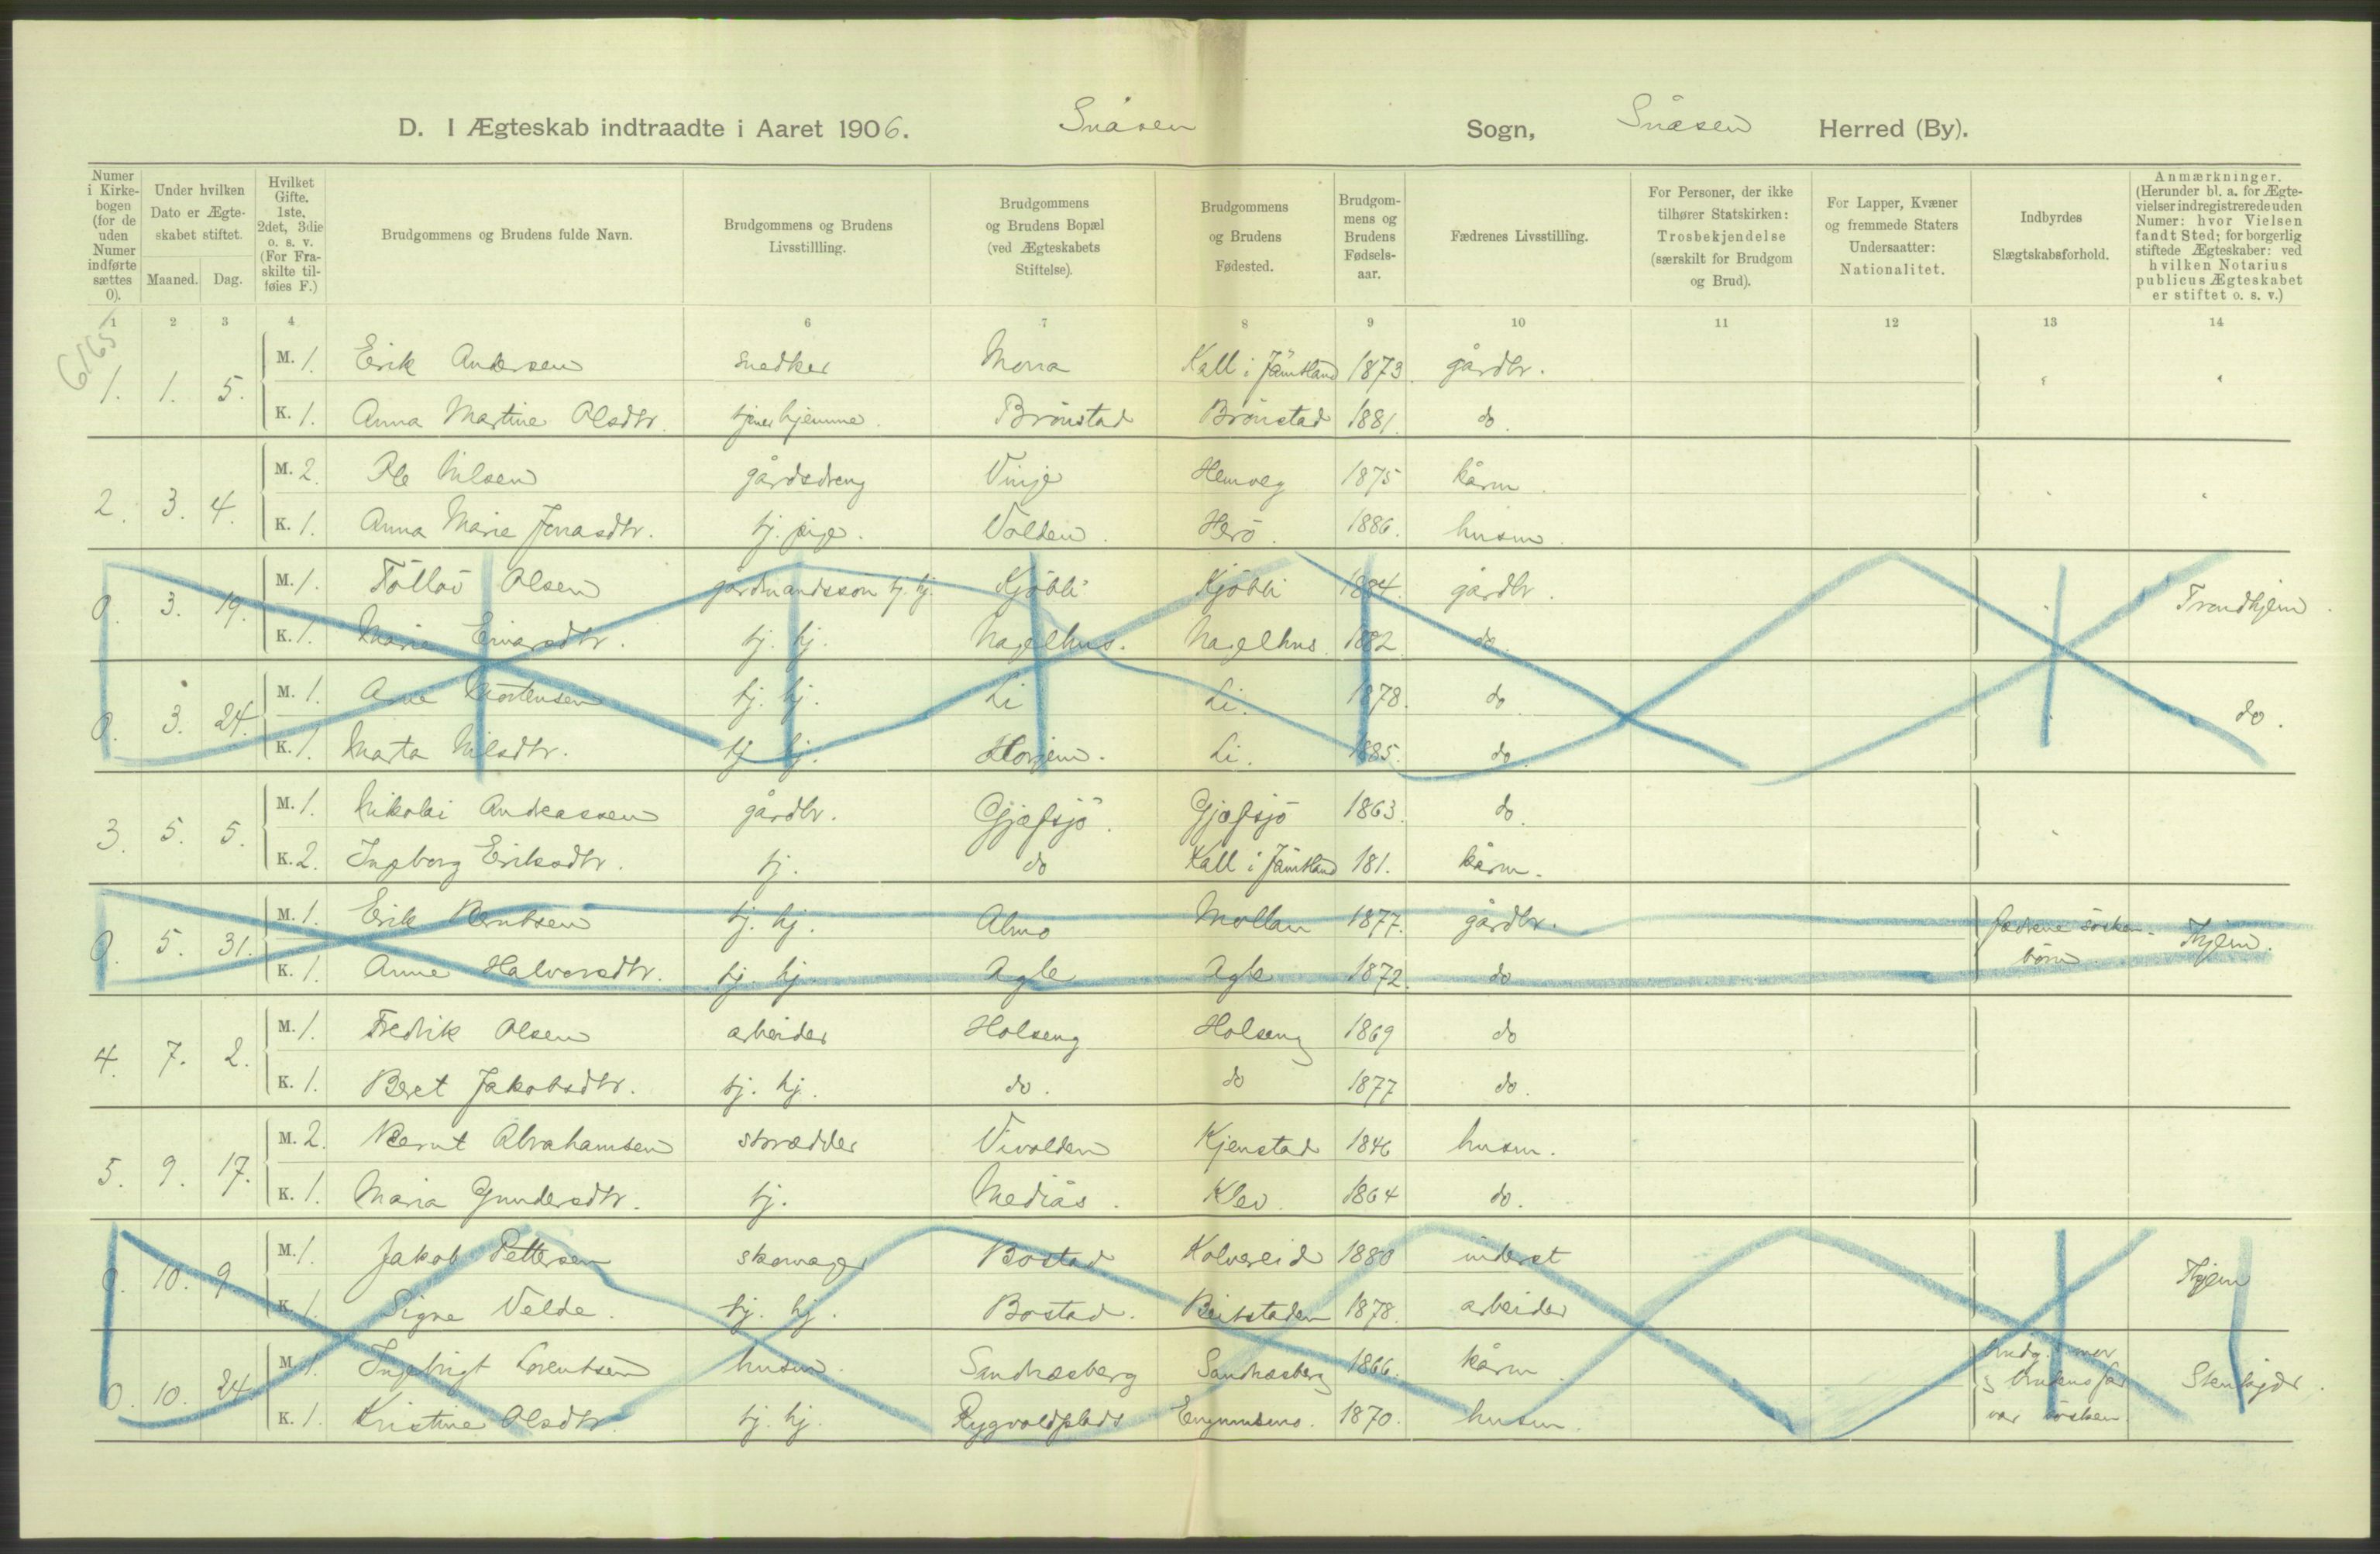 D. I Ægteskab indtraadte i Aaret 1906. Snåsen Sogn, Snåsen Herred (By).
Numer i Kirkebogen (for de uden Numer indførte sættes 0).
Under hvilken Dato er Ægteskabet stiftet. Maaned. Dag.
Hvilket Gifte. 1ste, 2det, 3die o. s. v. (For Fraskilte tilføies F.)
Brudgommens og Brudens fulde Navn.
Brudgommens og Brudens Livsstillling.
Brudgommens og Brudens Bopæl (ved Ægteskabets Stiftelse).
Brudgommens og Brudens Fødested.
Brudgommens og Brudens Fødselsaar.
Fædrenes Livsstilling.
For Personer, der ikke tilhører Statskirken: Trosbekjendelse (særskilt for Brudgom og Brud).
For Lapper, Kvæner og fremmede Staters Undersaatter: Nationalitet.
Indbyrdes Slægtskabsforhold.
Anmærkninger. (Herunder bl. a. for Ægtevielser indregistrerede uden Numer: hvor Vielsen fandt Sted; for borgerlig stiftede Ægteskaber: ved hvilken Notarius publicus Ægteskabet er stiftet o. s. v.)
1 2 3 4 6 7 8 9 10 11 12 13 14
6165
1. 1. 5. M. 1. Erik Andersen snedker Mona Kall i Jämtland 1873. gårdbr.
K. 1. Anna Martine Olsdtr. hjemme. Brönstad Brönstad 1881. do.
2. 3. 4. M. 2. Ole Nilsen gårdsdreng Vinje Hemveg 1875 kårm.
K. 1. Anna Marie Jonasdtr. tj. pige. Volden. Herö. 1886. husm.
0. 3. 19. M. 1. Töllöv Olsen gårdmandssön tj. hj. Kjöbli Kjöbli 1884. gårdbr. Trondhjem.
K. 1. Marie Einarsdtr. tj. hj. Nagelhus. Nagelhus. 1882. do.
0. 3. 24. M. 1. Arne Mortensen tj. hj. Li Li. 1878. do do.
K. 1. Marta Nilsdtr. tj. hj. Horjem. Li. 1885. do.
3. 5. 5. M. 1. Nikolai Andreassen gårdbr. Gjæfsjö. Gjæfsjö 1863. do.
K. 2. Ingeborg Eriksdtr. tj. do Kall i Jämtland 181. kårm.
0. 5. 31. M. 1. Erik Berntsen tj. hj. Almo Mollan 1877. gårdbr. fædrene söskenbörn. Thjem.
K. 1. Anne Halvorsdtr. tj. hj. Agle Agle 1872. do
4. 7. 2. M. 1. Fredrik Olsen arbeider Holseng Holseng 1869 do
K. 1. Beret Jakobsdtr. tj. hj. do. do 1877 do.
5. 9. 17. M. 2. Bernt Abrahamsen skrædder Vivolden Kjenstad 1846 husm.
K. 1. Maria Gundersdtr. tj. Mediås. Klev. 1864 do.
0. 10. 9. M. 1. Jakob Pettersen skomager Bostad Kolvereid 1880 inderst Thjem
K. 1. Signe Velde. tj. hj. Bostad. Beitstaden 1878. arbeider
0. 10. 24. M. 1. Ingebrigt Lorentsen husm. Sandnæsberg Sandnæsberg 1866. kårm. brudg.s mor
K. 1. Kristine Olsdtr. tj. hj. Rygvoldplads 1870. husm. & brudens far var sösken.